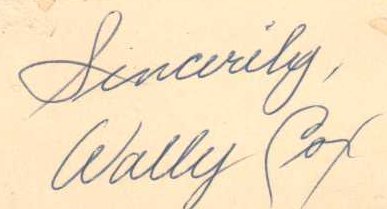 Sincerily,
Wally Cox